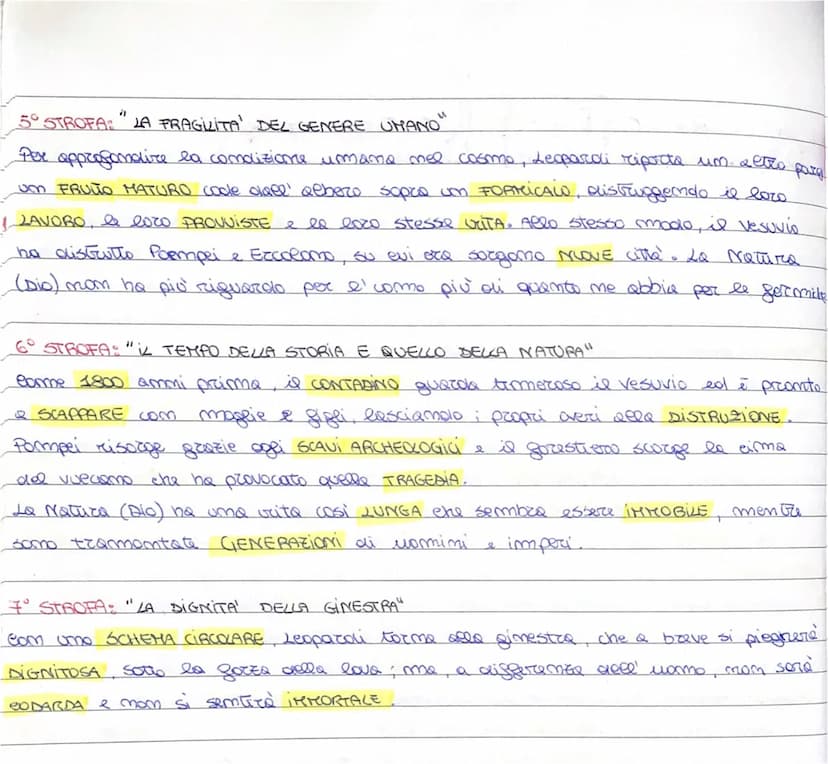 5° STROFA: "LA FRAGILITA' DEL GENERE UMANO"
Per approfondire la condizione umana nel cosmo, Leopardi riporta un altro para
un FRUTTO MATURO cade dall' albero sopra un FORMICAIO, distruggendo il loro
LAVORO, le loro PROVVISTE e la loro stessa VITA. Allo stesso modo, il Vesuvio
ha distrutto Pompei e Ercolano, su cui ora sorgono NUOVE città. La Natura
(Dio) non ha più riguardo per l' uomo più di quanto ne abbia per le formiche
6° STROFA: "IL TEMPO DELLA STORIA E QUELLO DELLA NATURA"
Come 1800 anni prima, il CONTADINO guarda timoroso il Vesuvio ed è pronto
a SCAPPARE con moglie e figli, lasciando i propri averi alla DISTRUZIONE.
Pompei risorge grazie agli SCAVI ARCHEOLOGICI e il forestiero scorge la cima
del vulcano che ha provocato quella TRAGEDIA.
La Natura (Dio) ha una vita così LUNGA che sembra essere IMMOBILE, mentre
sono tramontate GENERAZIONI di uomini e imperi.
7° STROFA: "LA DIGNITA' DELLA GINESTRA"
Con uno SCHEMA CIRCOLARE, Leopardi torna alla ginestra, che a breve si piegherà
DIGNITOSA, sotto la forza della lava; ma, a differenza dell' uomo, non sarà
CODARDA e non si sentirà IMMORTALE.